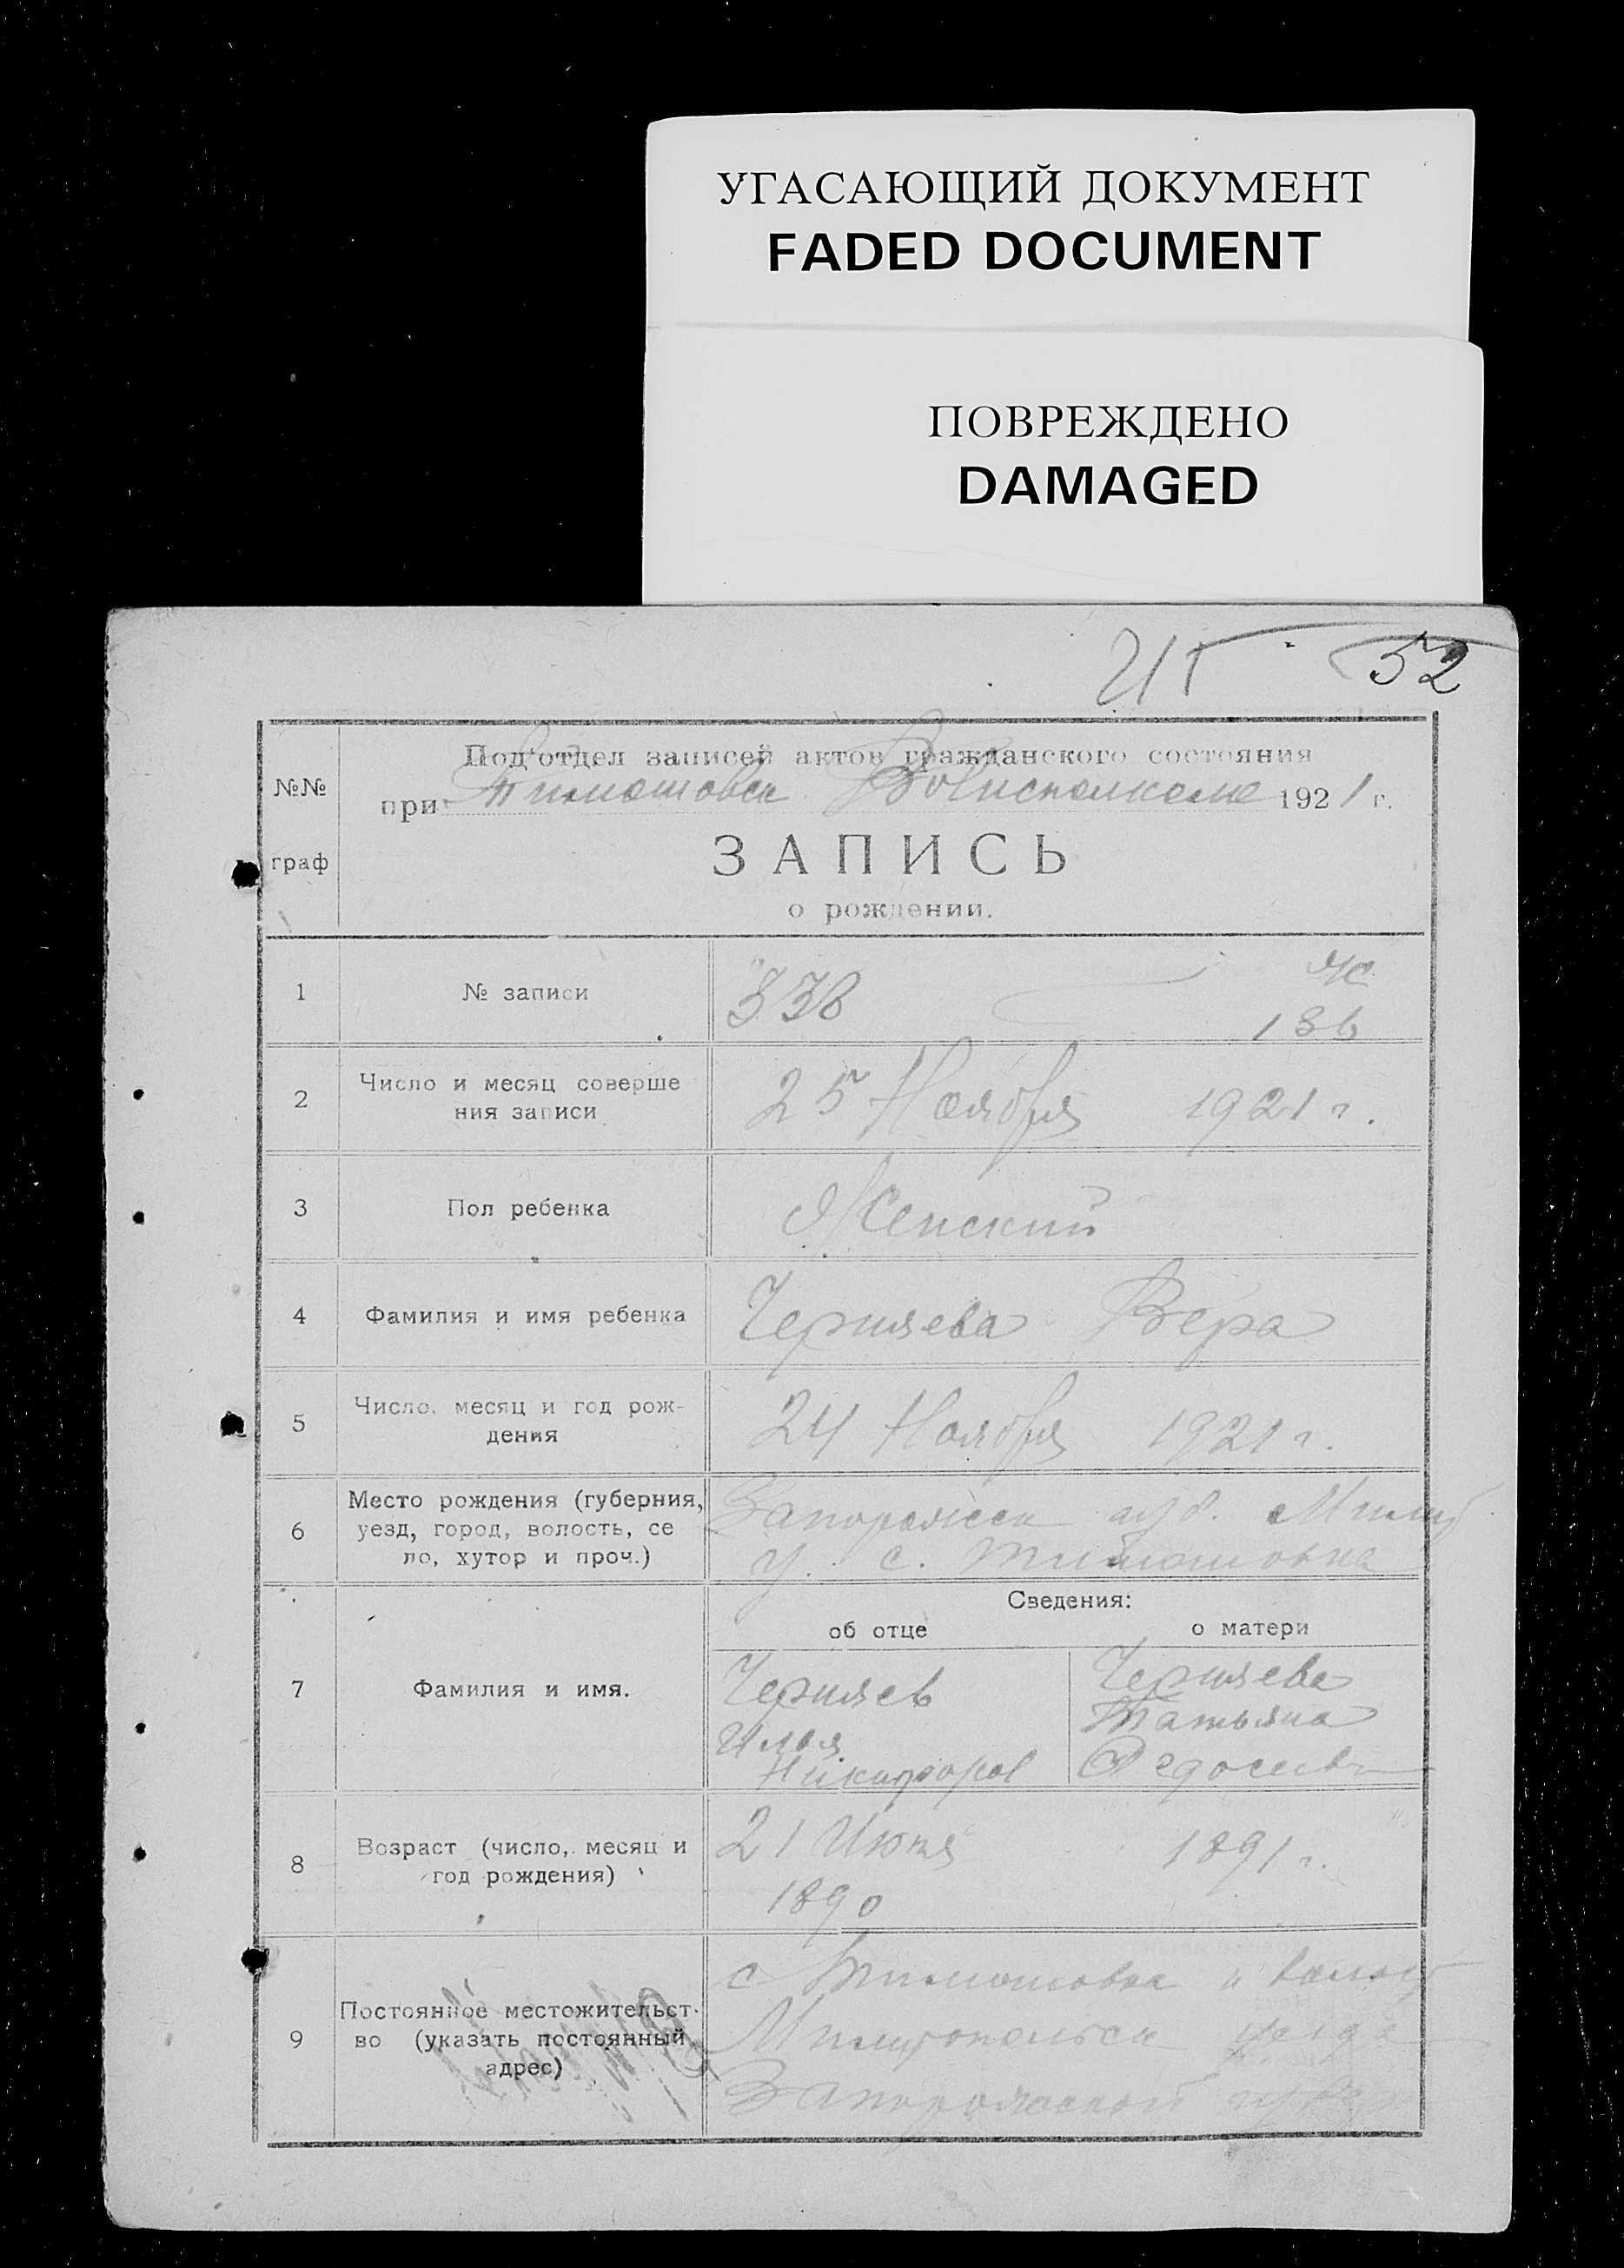 УГАСАЮЩИЙ ДОКУМЕНТ
FADED DOCUMENT
ПОВРЕЖДЕНО
DAMAGED
52
№№
граф
Под'отдел записей актов гражданского состояния
при Тимошовск Волисполкоме 1921 г.
ЗАПИСЬ
о рождении.
1 № записи 338 Ж
136
2 Число и месяц соверше
ния записи 25 Ноября 1921 г.
3 Пол ребенка Женский
4 Фамилия и имя ребенка Черняева Вера
5 Число, месяц и год рож-
дения 24 Ноября 1921 г.
6 Место рождения (губерния,
уезд, город, волость, се
ло, хутор и проч.)
Запорожск губ. Мелит
у. с. Тимошовка
Сведения:
об отце о матери
7 Фамилия и имя.
Черняев
Илья
Никифоров
Черняева
Татьяна
8 Возраст (число, месяц и
год рождения)
21 Июня
1890
1891 г.
9 Постоянное местожительст-
во (указать постоянный
адрес)
с Тимошовка
Мелитопольск уезда
Запорожской губер